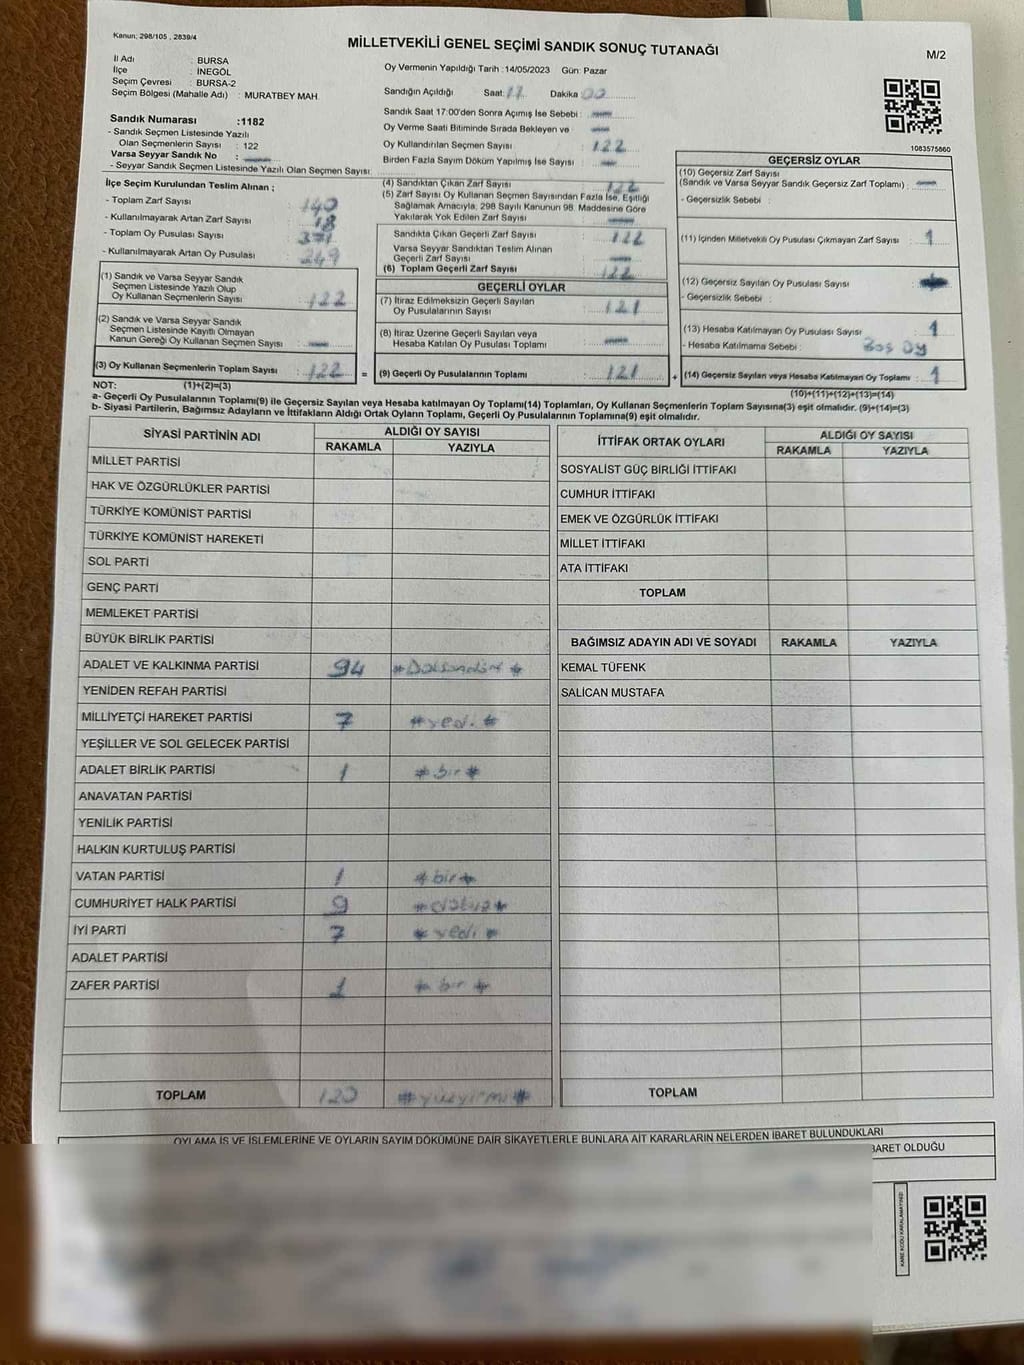 Kanun: 298/105 , 2839/4
MİLLETVEKİLİ GENEL SEÇİMİ SANDIK SONUÇ TUTANAĞI
M/2
İl Adı : BURSA
İlçe : İNEGÖL
Seçim Çevresi : BURSA-2
Seçim Bölgesi (Mahalle Adı) : MURATBEY MAH.
Oy Vermenin Yapıldığı Tarih :14/05/2023 Gün: Pazar
Sandığın Açıldığı Saat: 17 Dakika: 00
Sandık Saat 17:00'den Sonra Açımış İse Sebebi :
Oy Verme Saati Bitiminde Sırada Bekleyen ve
Oy Kullandırılan Seçmen Sayısı : 122
Birden Fazla Sayım Döküm Yapılmış İse Sayısı :
1083575860
Sandık Numarası :1182
- Sandık Seçmen Listesinde Yazılı
Olan Seçmenlerin Sayısı : 122
Varsa Seyyar Sandık No :
- Seyyar Sandık Seçmen Listesinde Yazılı Olan Seçmen Sayısı:
İlçe Seçim Kurulundan Teslim Alınan ;
- Toplam Zarf Sayısı : 140
- Kullanılmayarak Artan Zarf Sayısı : 18
- Toplam Oy Pusulası Sayısı : 371
- Kullanılmayarak Artan Oy Pusulası : 249
(1) Sandık ve Varsa Seyyar Sandık
Seçmen Listesinde Yazılı Olup
Oy Kullanan Seçmenlerin Sayısı : 122
(2) Sandık ve Varsa Seyyar Sandık
Seçmen Listesinde Kayıtlı Olmayan
Kanun Gereği Oy Kullanan Seçmen Sayısı :
(3) Oy Kullanan Seçmenlerin Toplam Sayısı : 122 =
(4) Sandıktan Çıkan Zarf Sayısı : 122
(5) Zarf Sayısı Oy Kullanan Seçmen Sayısından Fazla İse, Eşitliği
Sağlamak Amacıyla; 298 Sayılı Kanunun 98. Maddesine Göre
Yakılarak Yok Edilen Zarf Sayısı :
Sandıkta Çıkan Geçerli Zarf Sayısı : 122
Varsa Seyyar Sandıktan Teslim Alınan
Geçerli Zarf Sayısı :
(6) Toplam Geçerli Zarf Sayısı : 122
GEÇERLİ OYLAR
(7) İtiraz Edilmeksizin Geçerli Sayılan
Oy Pusulalarının Sayısı : 121
(8) İtiraz Üzerine Geçerli Sayılan veya
Hesaba Katılan Oy Pusulası Toplamı :
(9) Geçerli Oy Pusulalarının Toplamı : 121 +
GEÇERSİZ OYLAR
(10) Geçersiz Zarf Sayısı
(Sandık ve Varsa Seyyar Sandık Geçersiz Zarf Toplamı) :
- Geçersizlik Sebebi :
(11) İçinden Milletvekili Oy Pusulası Çıkmayan Zarf Sayısı : 1
(12) Geçersiz Sayılan Oy Pusulası Sayısı :
- Geçersizlik Sebebi :
(13) Hesaba Katılmayan Oy Pusulası Sayısı : 1
- Hesaba Katılmama Sebebi : Boş Oy
(14) Geçersiz Sayılan veya Hesaba Katılmayan Oy Toplamı : 1
NOT: (1)+(2)=(3) (10)+(11)+(12)+(13)=(14)
a- Geçerli Oy Pusulalarının Toplamı(9) ile Geçersiz Sayılan veya Hesaba katılmayan Oy Toplamı(14) Toplamları, Oy Kullanan Seçmenlerin Toplam Sayısına(3) eşit olmalıdır. (9)+(14)=(3)
b- Siyasi Partilerin, Bağımsız Adayların ve İttifakların Aldığı Ortak Oyların Toplamı, Geçerli Oy Pusulalarının Toplamına(9) eşit olmalıdır.
SİYASİ PARTİNİN ADI ALDIĞI OY SAYISI
RAKAMLA YAZIYLA
MİLLET PARTİSİ
HAK VE ÖZGÜRLÜKLER PARTİSİ
TÜRKİYE KOMÜNİST PARTİSİ
TÜRKİYE KOMÜNİST HAREKETİ
SOL PARTİ
GENÇ PARTİ
MEMLEKET PARTİSİ
BÜYÜK BİRLİK PARTİSİ
ADALET VE KALKINMA PARTİSİ 94
YENİDEN REFAH PARTİSİ
MİLLİYETÇİ HAREKET PARTİSİ 7 #yedi#
YEŞİLLER VE SOL GELECEK PARTİSİ
ADALET BİRLİK PARTİSİ 1 #bir#
ANAVATAN PARTİSİ
YENİLİK PARTİSİ
HALKIN KURTULUŞ PARTİSİ
VATAN PARTİSİ 1 #bir#
CUMHURİYET HALK PARTİSİ 9 #dokuz#
İYİ PARTİ 7 #yedi#
ADALET PARTİSİ
ZAFER PARTİSİ 1 #bir#
TOPLAM 120 #yüzyirmi#
İTTİFAK ORTAK OYLARI ALDIĞI OY SAYISI
RAKAMLA YAZIYLA
SOSYALİST GÜÇ BİRLİĞİ İTTİFAKI
CUMHUR İTTİFAKI
EMEK VE ÖZGÜRLÜK İTTİFAKI
MİLLET İTTİFAKI
ATA İTTİFAKI
TOPLAM
BAĞIMSIZ ADAYIN ADI VE SOYADI RAKAMLA YAZIYLA
KEMAL TÜFENK
SALİCAN MUSTAFA
TOPLAM
OYLAMA İŞ VE İŞLEMLERİNE VE OYLARIN SAYIM DÖKÜMÜNE DAİR ŞİKAYETLERLE BUNLARA AİT KARARLARIN NELERDEN İBARET BULUNDUKLARI
BARET OLDUĞU
KARE KODU KARALAMAYINIZ!